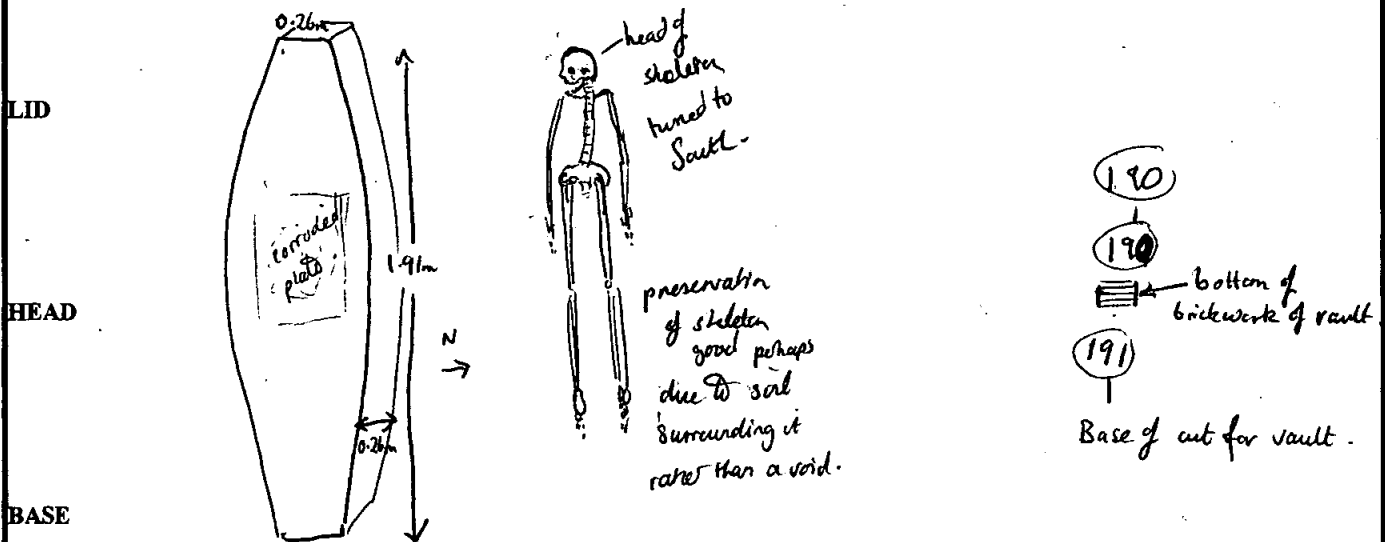 LID
HEAD
BASE
0.26m
corroded
plate
1.91m
0.26m
N
head of
skeleton
turned to
South.
preservation
of skeleton
good perhaps
due to soil
surrounding it
rather than a void.
190
190
bottom of
brickwork of vault.
191
Base of cut for vault.